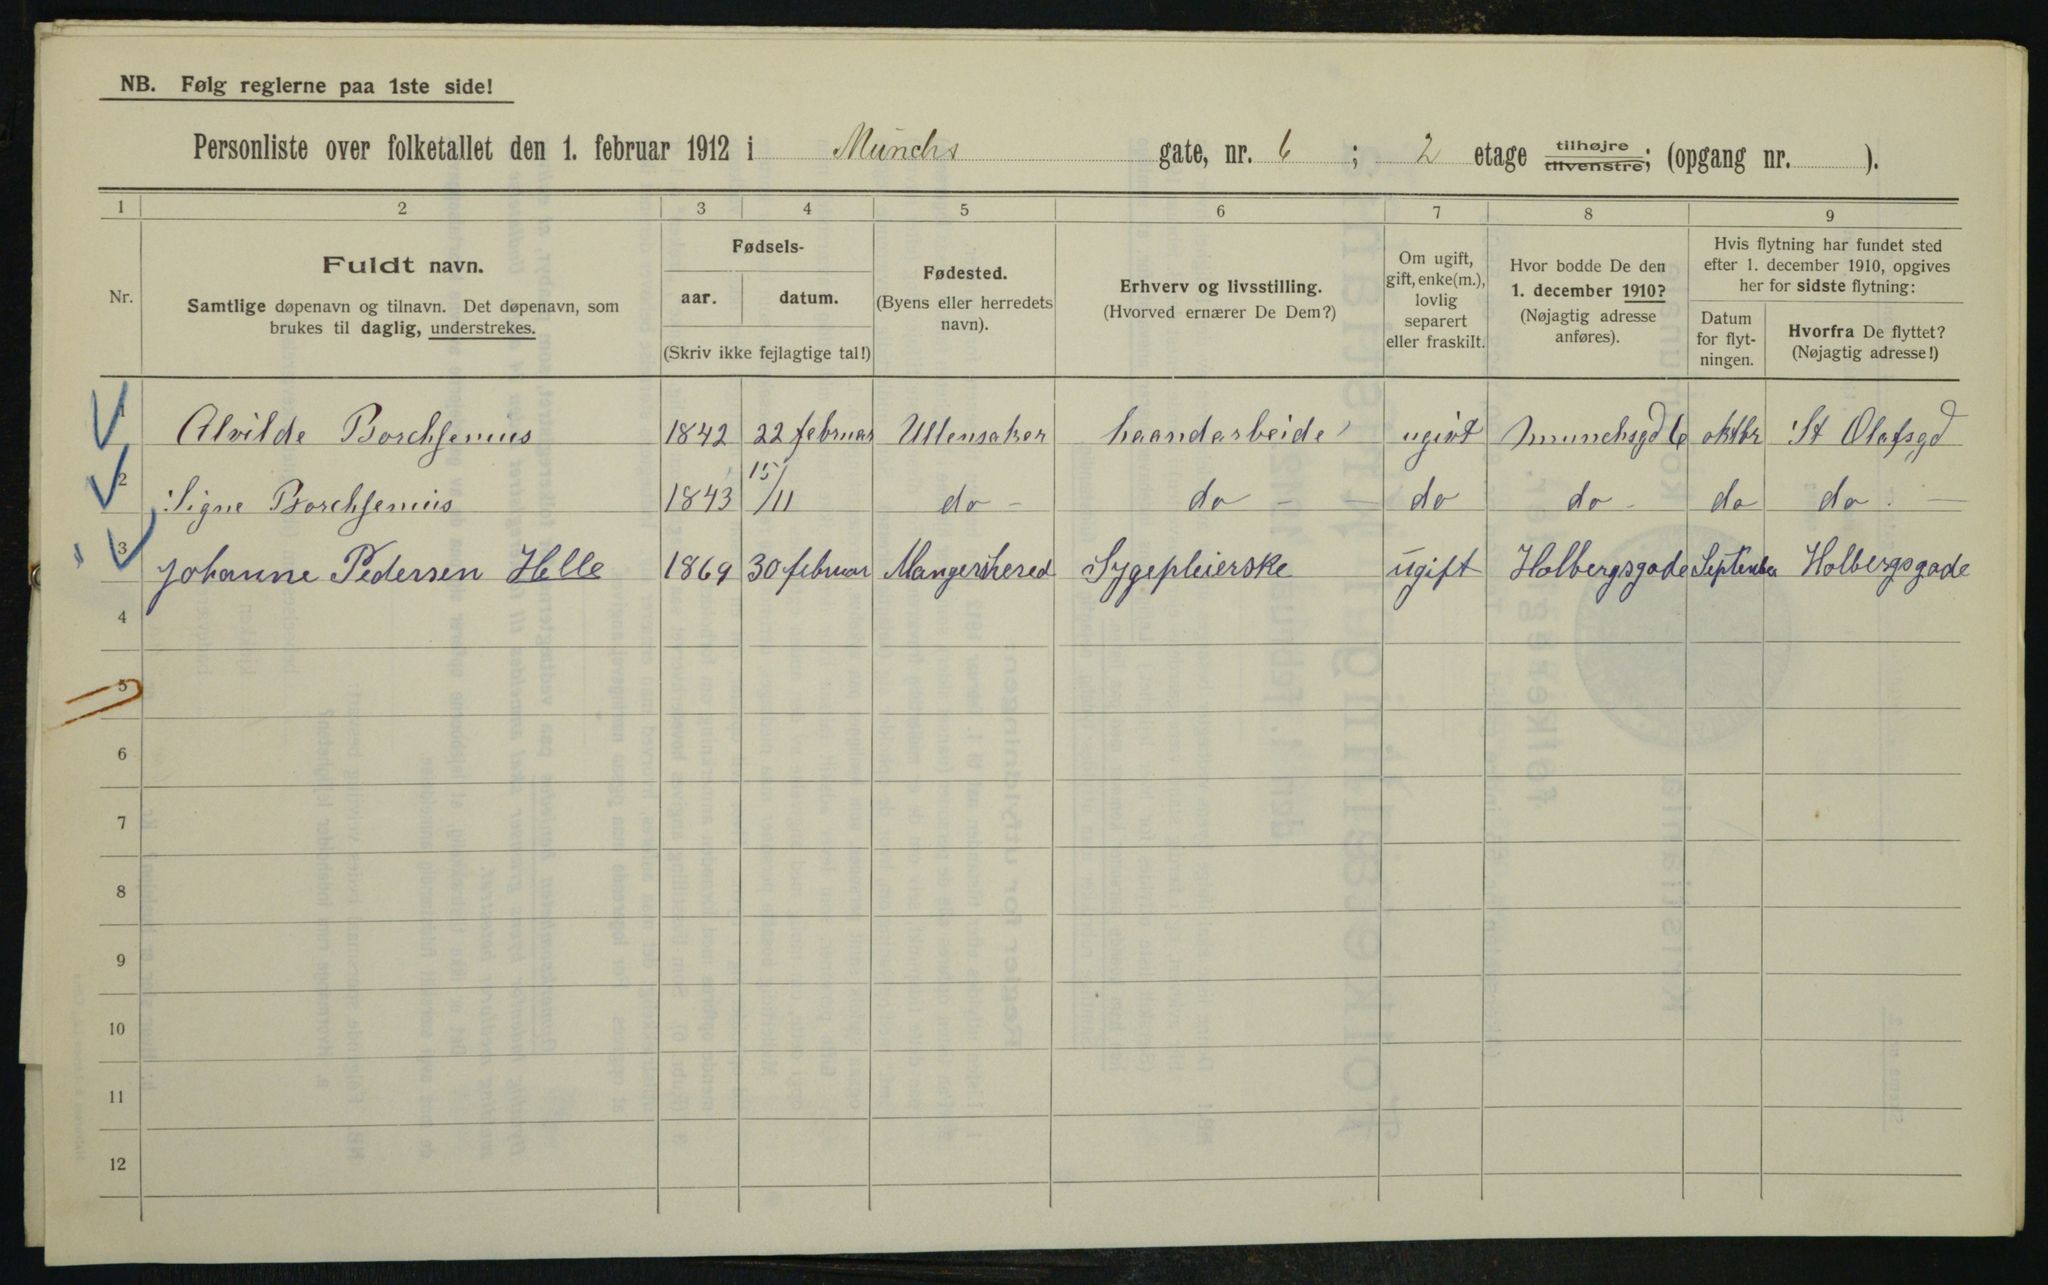 NB. Følg reglerne paa 1ste side!
Personliste over folketallet den 1. februar 1912 i Munchs gate, nr. 6 ; 2 etage tilhøjre tilvenstre; (opgang nr. ).
1 2 3 4 5 6 7 8 9
Nr.
Fuldt navn.
Samtlige døpenavn og tilnavn. Det døpenavn, som
brukes til daglig, understrekes.
Fødsels-
aar. datum.
(Skriv ikke fejlagtige tal!)
Fødested.
(Byens eller herredets
navn).
Erhverv og livsstilling.
(Hvorved ernærer De Dem?)
Om ugift,
gift, enke(m.),
lovlig
separert
eller fraskilt.
Hvor bodde De den
1. december 1910?
(Nøjagtig adresse
anføres).
Hvis flytning har fundet sted
efter 1. december 1910, opgives
her for sidste flytning:
Datum
for flyt-
ningen.
Hvorfra De flyttet?
(Nøjagtig adresse!)
1 Alvilde Borchsenius 1842 22 februar Ullensaker haandarbeide ugivt Munchsgd 6 oktbr St Olafsgd
2 Signe Borchsenius 1843 15/11 do - do - - do do - do do. -
3 Johanne Pedersen Helle 1869 30 februar Mangersherred Sygepleierske ugift Holbergsgade September Holbergsgade
4
5
6
7
8
9
10
11
12